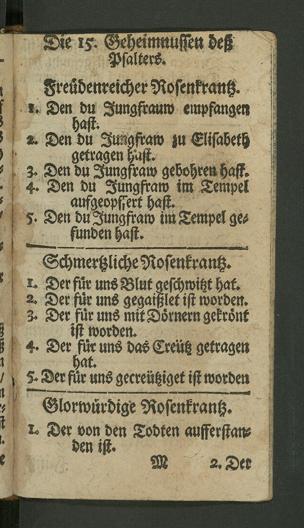 Die 15. Geheimnussen deß
Psalters.
Freüdenreicher Rosenkrantz.
1. Den du Jungfrauw empfangen
hast.
2. Den du Jungfraw zu Elisabeth
getragen hast.
3. Den du Jungfraw gebohren hast.
4. Den du Jungfraw im Tempel
aufgeopffert hast.
5. Den du Jungfraw im Tempel ge-
funden hast.
Schmertzliche Rosenkrantz.
1. Der für uns Blut geschwitzt hat.
2. Der für uns gegaißlet ist worden.
3. Der für uns mit Dörnern gekrönt
ist worden.
4. Der für uns das Creütz getragen
hat.
5. Der für uns gecreütziget ist worden
Glorwürdige Rosenkrantz.
1. Der von den Todten aufferstan-
den ist.
M 2. Der